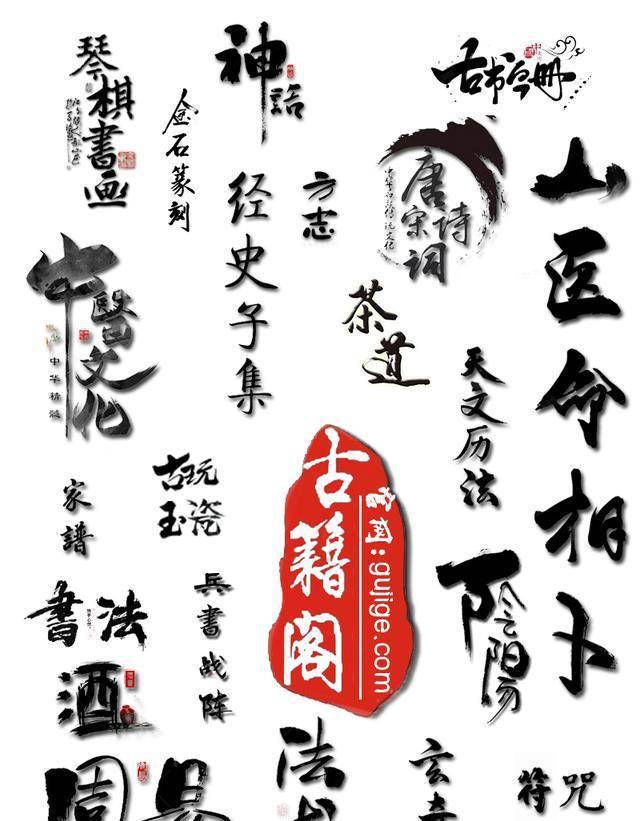 琴棋书画
神話
古书画册
金石篆刻
唐诗
宋词
经史子集
方志
山医命相卜
茶道
中醫文化
中华精髓
天文历法
古籍阁
官网:gujige.com
古玩
玉瓷
家譜
兵書战阵
陰陽
書法
酒
周易
法术
玄
符咒